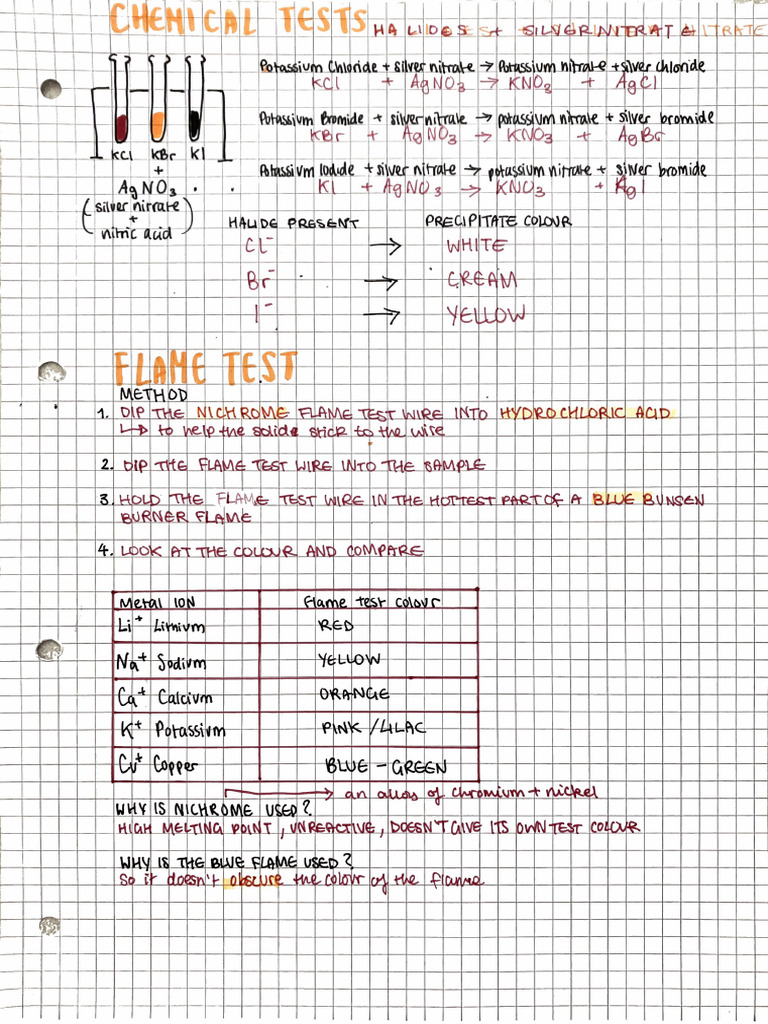 CHEMICAL TESTS HALIDES + SILVER NITRATE
Potassium Chloride + silver nitrate → Potassium nitrate + silver chloride
KCl + AgNO3 → KNO3 + AgCl
Potassium Bromide + silver nitrate → potassium nitrate + silver bromide
KBr + AgNO3 → KNO3 + AgBr
Potassium Iodide + silver nitrate → potassium nitrate + silver bromide
KI + AgNO3 → KNO3 + AgI
KCl KBr KI
+
AgNO3
(silver nitrate
+
nitric acid)
HALIDE PRESENT PRECIPITATE COLOUR
Cl⁻ → WHITE
Br⁻ → CREAM
I⁻ → YELLOW
FLAME TEST
METHOD
1. DIP THE NICHROME FLAME TEST WIRE INTO HYDROCHLORIC ACID
↳ to help the solids stick to the wire
2. DIP THE FLAME TEST WIRE INTO THE SAMPLE
3. HOLD THE FLAME TEST WIRE IN THE HOTTEST PART OF A BLUE BUNSEN
BURNER FLAME
4. LOOK AT THE COLOUR AND COMPARE
Metal ION Flame test colour
Li⁺ Lithium RED
Na⁺ Sodium YELLOW
Ca⁺ Calcium ORANGE
K⁺ Potassium PINK / LILAC
Cu⁺ Copper BLUE - GREEN
→ an alloy of chromium + nickel
WHY IS NICHROME USED?
HIGH MELTING POINT, UNREACTIVE, DOESN'T GIVE ITS OWN TEST COLOUR
WHY IS THE BLUE FLAME USED?
So it doesn't obscure the colour of the flame